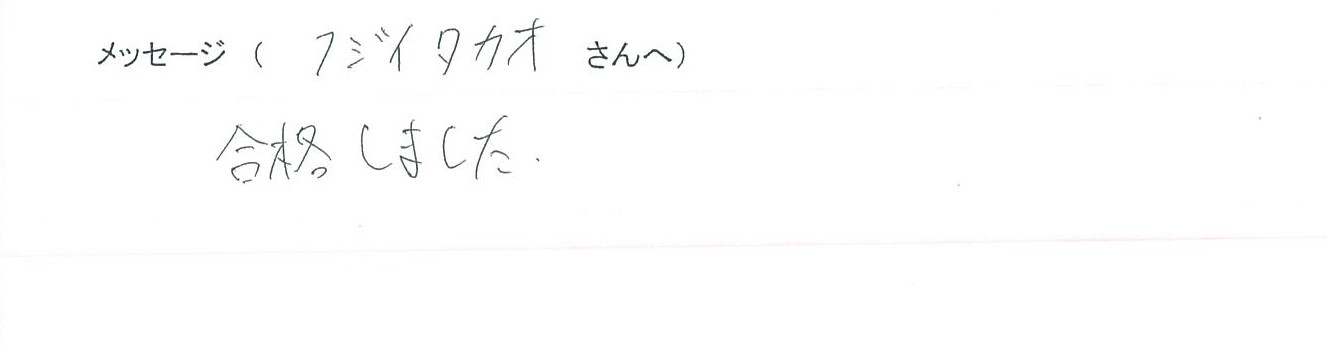 メッセージ（ フジイタカオ さんへ）
合格しました.